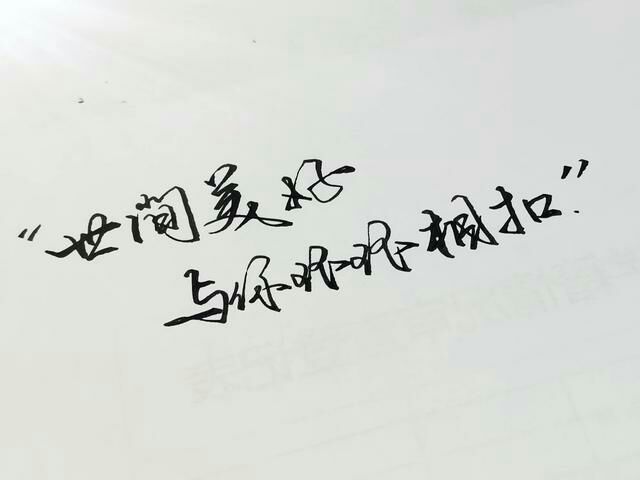 “世间美好
与你环环相扣”